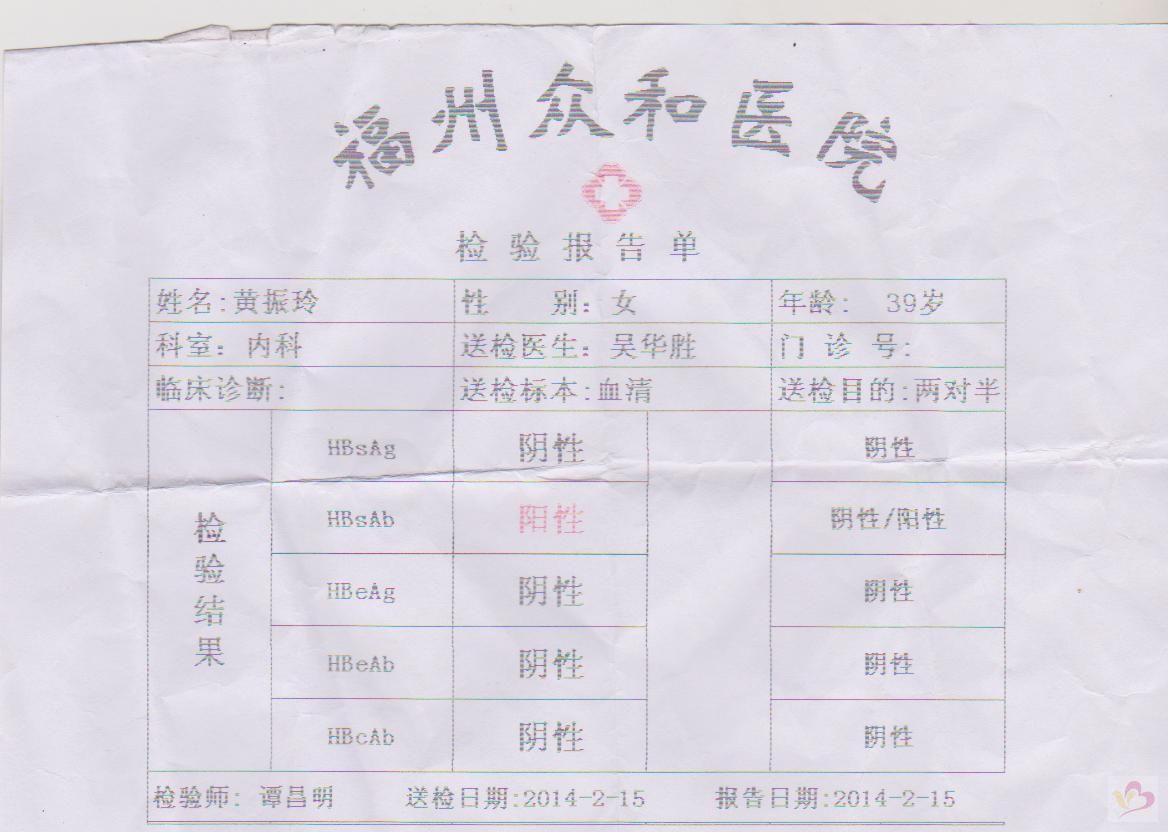 福州众和医院
检验报告单
姓名:黄振玲 性 别:女 年龄: 39岁
科室:内科 送检医生:吴华胜 门诊号:
临床诊断: 送检标本:血清 送检目的:两对半
检验结果
HBsAg 阴性 阴性
HBsAb 阳性 阴性/阳性
HBeAg 阴性 阴性
HBeAb 阴性 阴性
HBcAb 阴性 阴性
检验师: 谭昌明 送检日期:2014-2-15 报告日期:2014-2-15